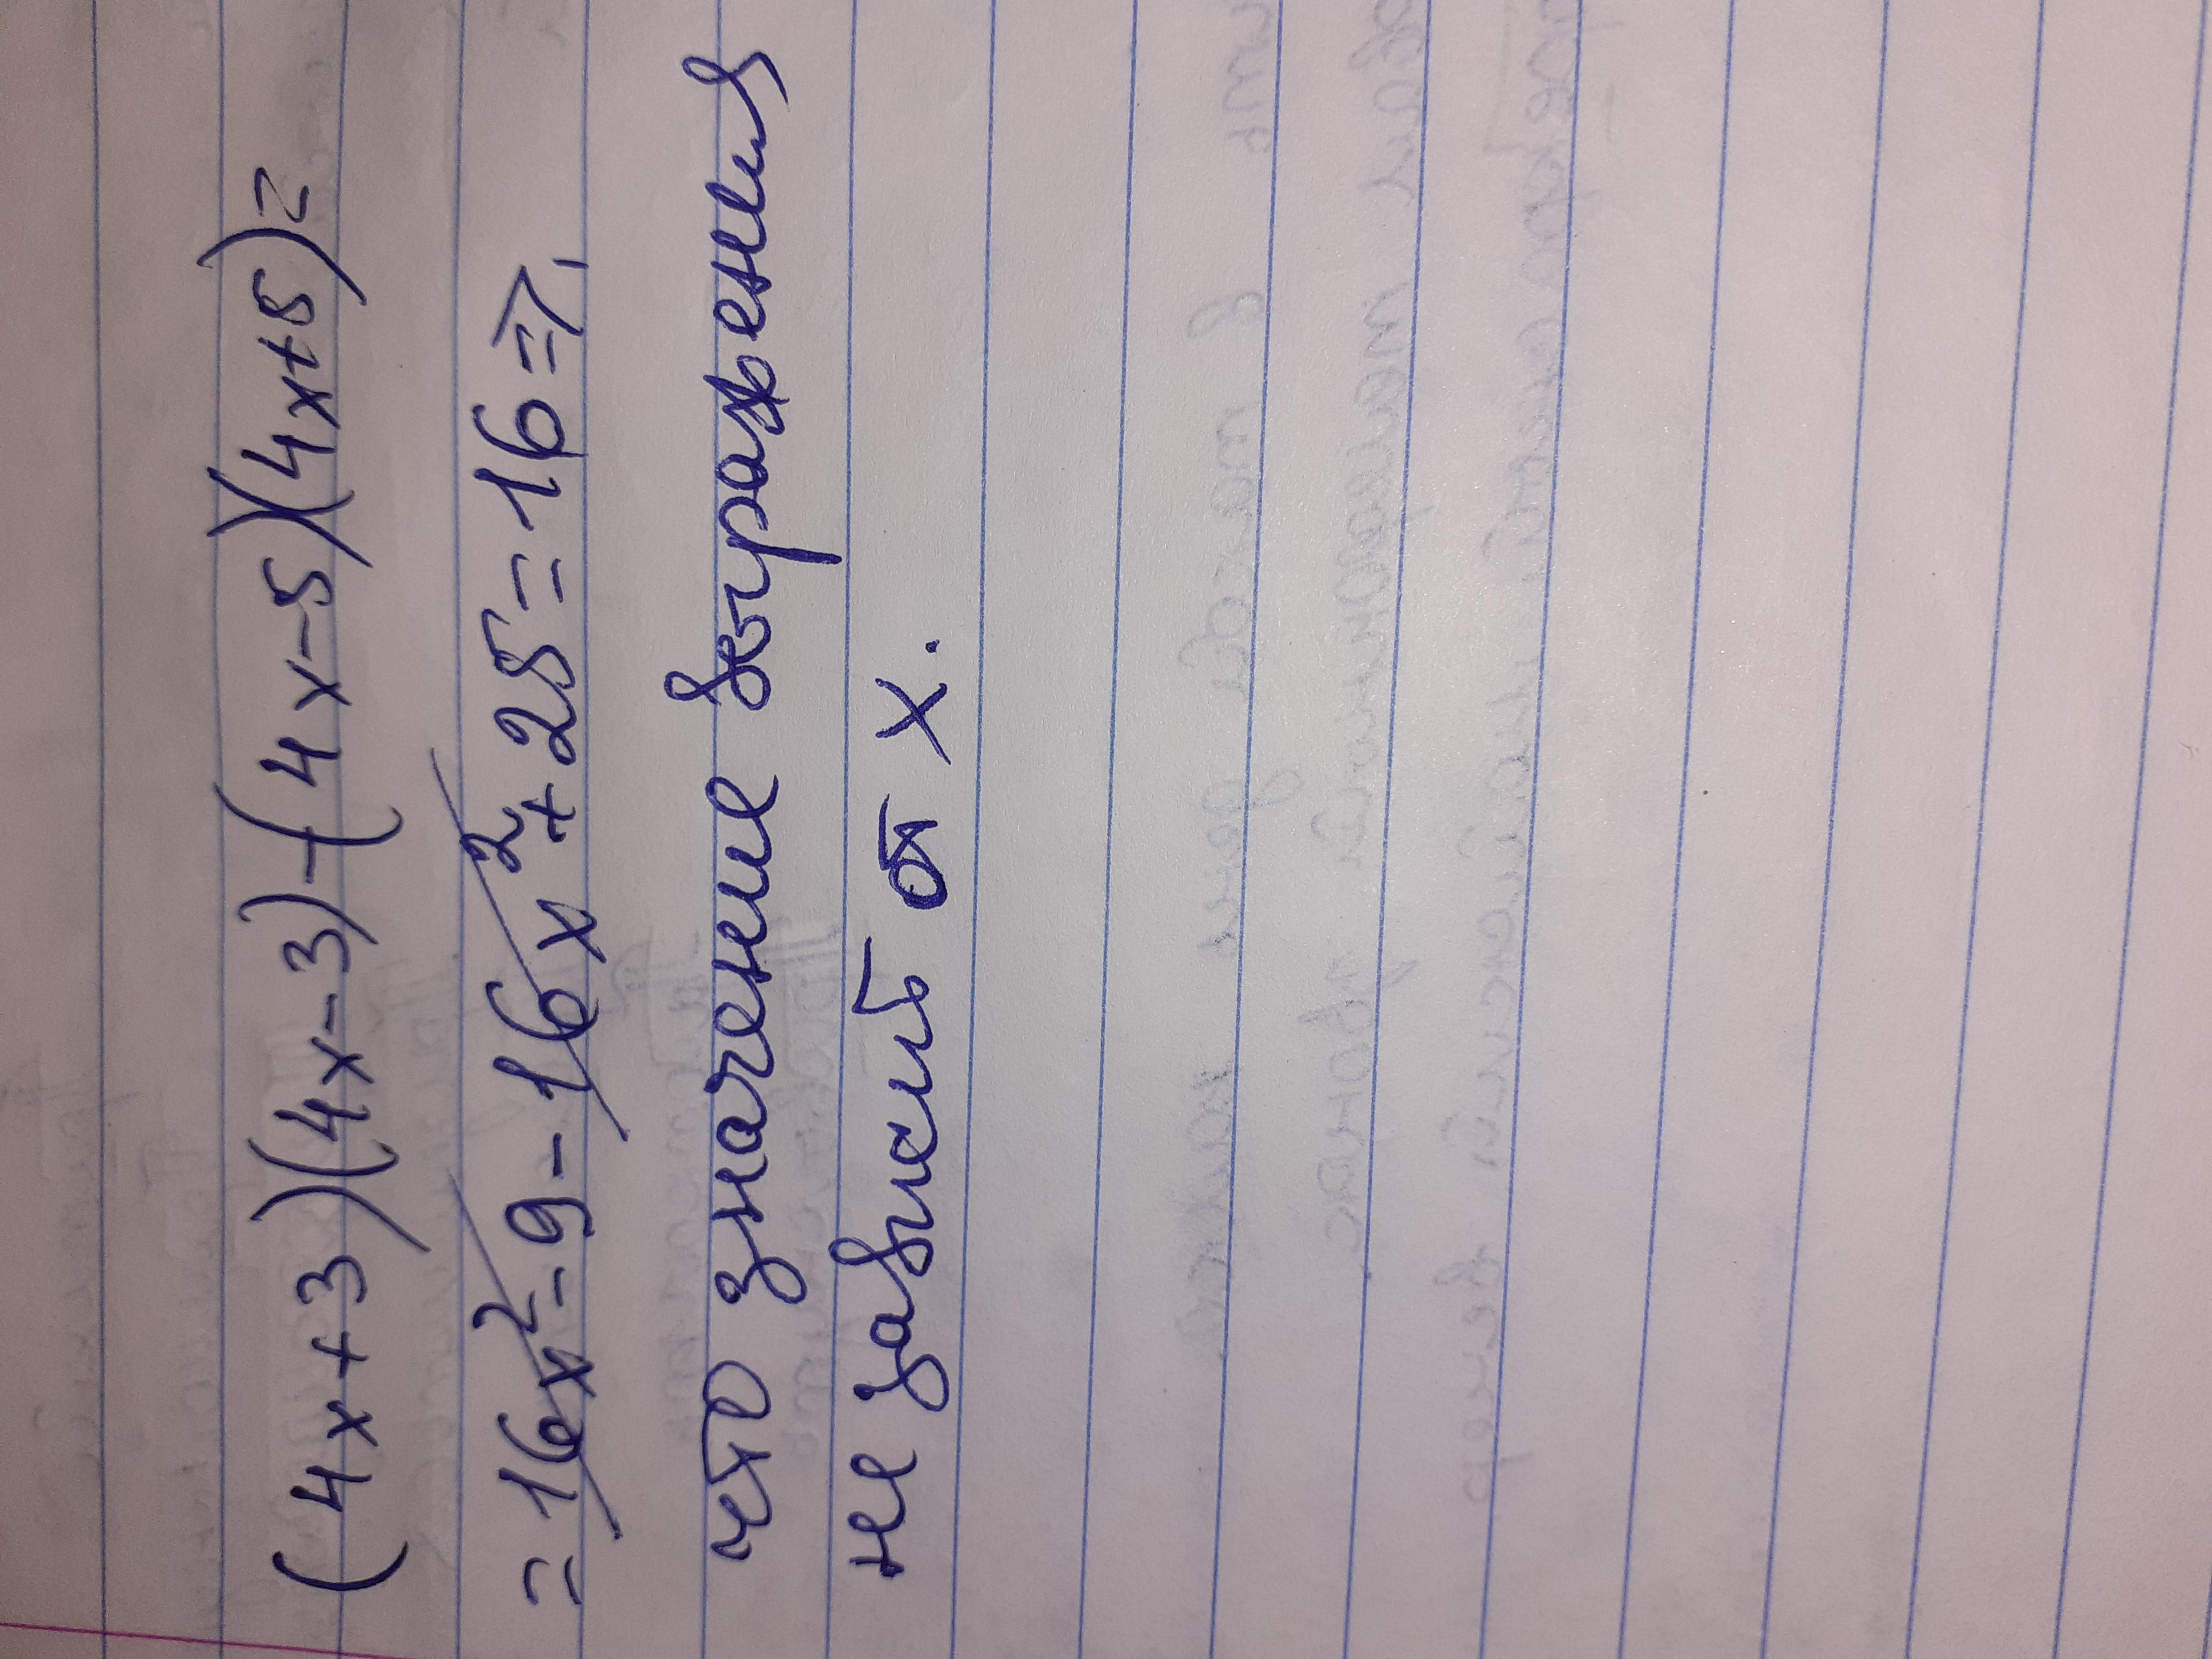 (4x+3)(4x-3)-(4x-5)(4x+5)=
=16x²-9-16x²+25=16 ⇒,
что значение выражения
не зависит от x.